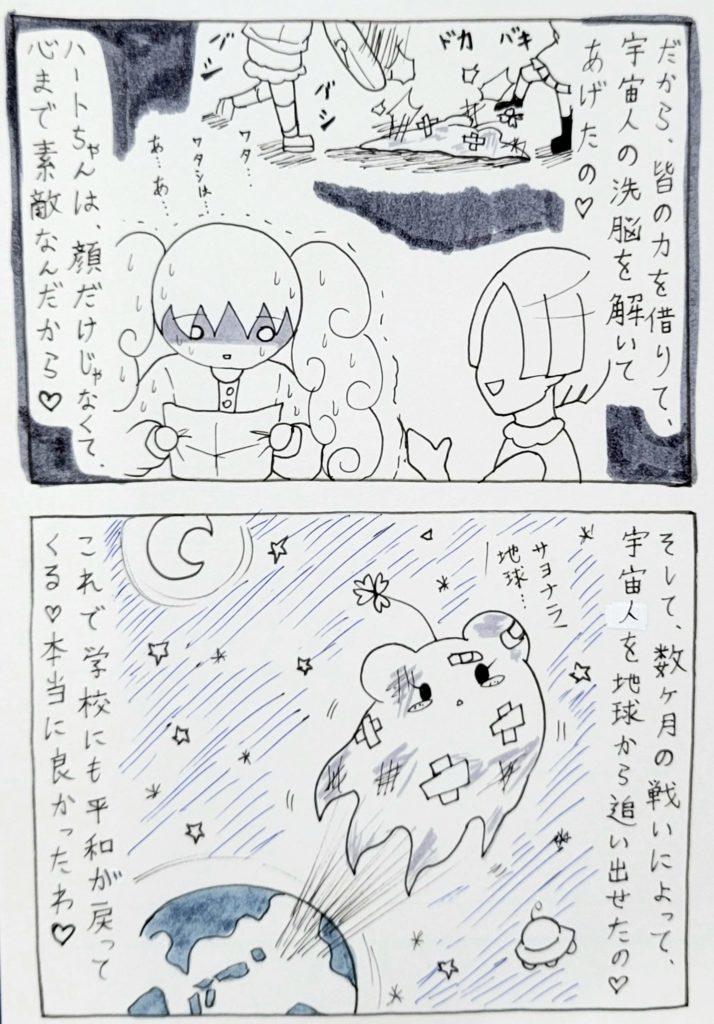 だから、皆の力を借りて、
宇宙人の洗脳を解いて
あげたの♡
ドカ バキ
バシ
バシ
ワタ…
ワタシは…
あ…あ…
ハートちゃんは、顔だけじゃなくて、
心まで素敵なんだから♡
そして、数ヶ月の戦いによって、
宇宙人を地球から追い出せたの♡
サヨナラ
地球…
これで学校にも平和が戻って
くる♡本当に良かったわ♡